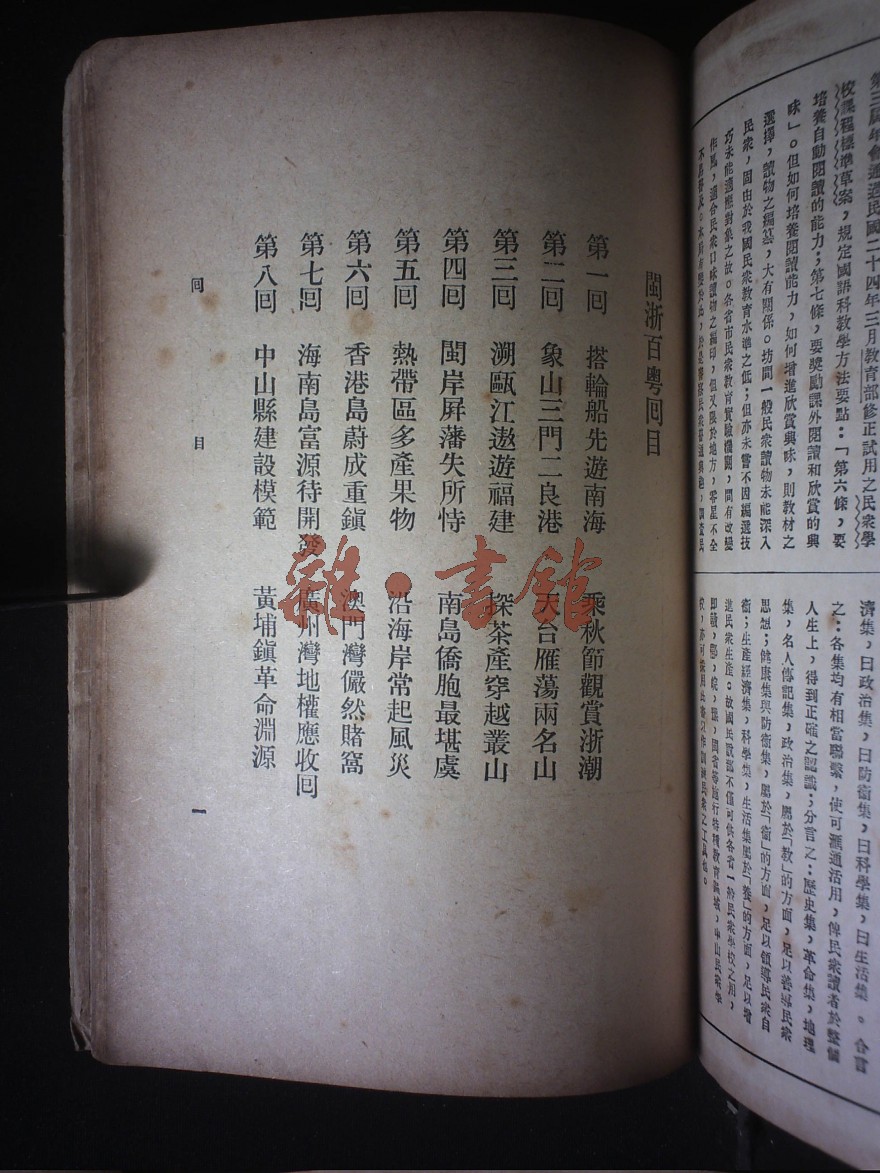 第三屆年會通過民國二十四年三月教育部修正試用之民衆學
校課程標準草案，規定國語科教學方法要點：「第六條，要
培養自動閱讀的能力；第七條，要獎勵課外閱讀和欣賞的興
味」。但如何培養閱讀能力，如何增進欣賞興味，則教材之
選擇，讀物之編纂，大有關係。坊間一般民衆讀物未能深入
民衆，固由於我國民衆教育水準之低；但亦未嘗不因編選技
巧未能適應對象之故。各省市民衆教育實驗機關，間有改變
作風，適合民衆口味讀物之編印，但又限於地方，零星不全
濟集，曰政治集，曰防衛集，曰科學集，曰生活集。合言
之：各集均有相當聯繫，使可滙通活用，俾民衆讀者於整個
人生上，得到正確之認識；分言之：歷史集，革命集，地理
集，名人傳記集，政治集，屬於「教」的方面，足以善導民衆
思想；健康集與防衛集，屬於「衛」的方面，足以領導民衆自
衛；生產經濟集，科學集，生活集屬於「養」的方面，足以增
進民衆生產。故國民說部不僅可供各省一般民衆學校之用，
閩浙百粵囘目
第一囘 搭輪船先遊南海 乘秋節觀賞浙潮
第二囘 象山三門二良港 天台雁蕩兩名山
第三囘 溯甌江遨遊福建 探茶產穿越叢山
第四囘 閩岸屏藩失所恃 南島僑胞最堪虞
第五囘 熱帶區多產果物 沿海岸常起風災
第六囘 香港島蔚成重鎮 澳門灣儼然賭窩
第七囘 海南島富源待開發 廣州灣地權應收囘
第八囘 中山縣建設模範 黃埔鎮革命淵源
囘目 一
雅·書館